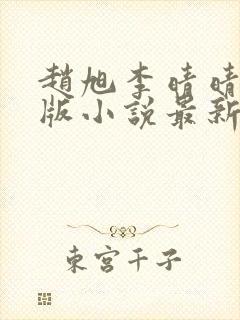 趙旭李晴晴
版小說最新
東宮千子